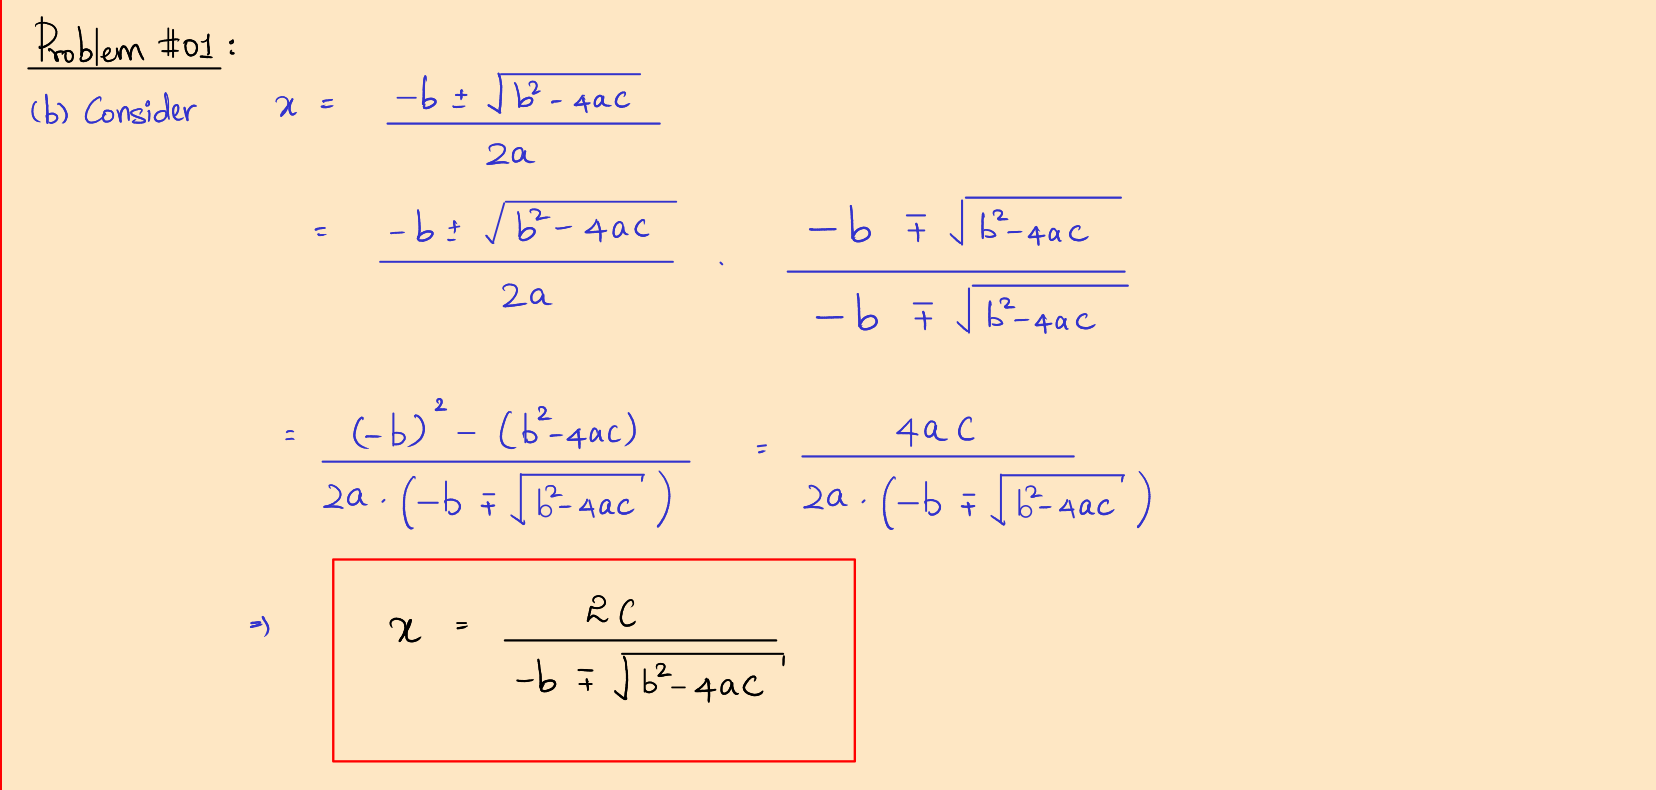 Problem #01:
(b) Consider x = (-b ± √(b² - 4ac)) / 2a
= (-b ± √(b² - 4ac)) / 2a · (-b ∓ √(b² - 4ac)) / (-b ∓ √(b² - 4ac))
= ((-b)² - (b² - 4ac)) / (2a · (-b ∓ √(b² - 4ac))) = 4ac / (2a · (-b ∓ √(b² - 4ac)))
⇒ x = 2c / (-b ∓ √(b² - 4ac))